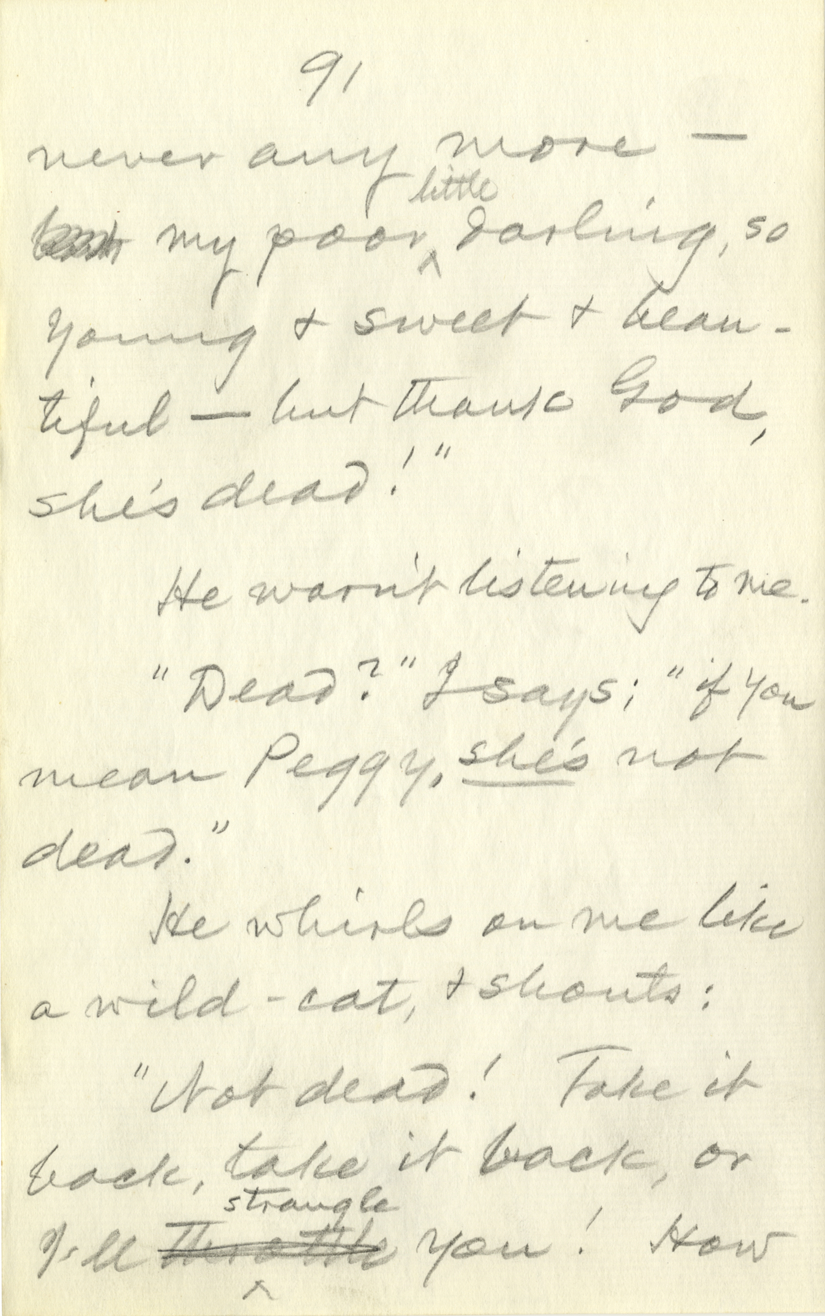 91
never any more —
my poor little darling, so
young & sweet & beau-
tiful — but thank God,
she's dead!"
He warn't listening to me.
"Dead?" I says; "if you
mean Peggy, she's not
dead."
He whirls on me like
a wild-cat, & shouts:
"Not dead! Take it
back, take it back, or
I'll throttle strangle you! How